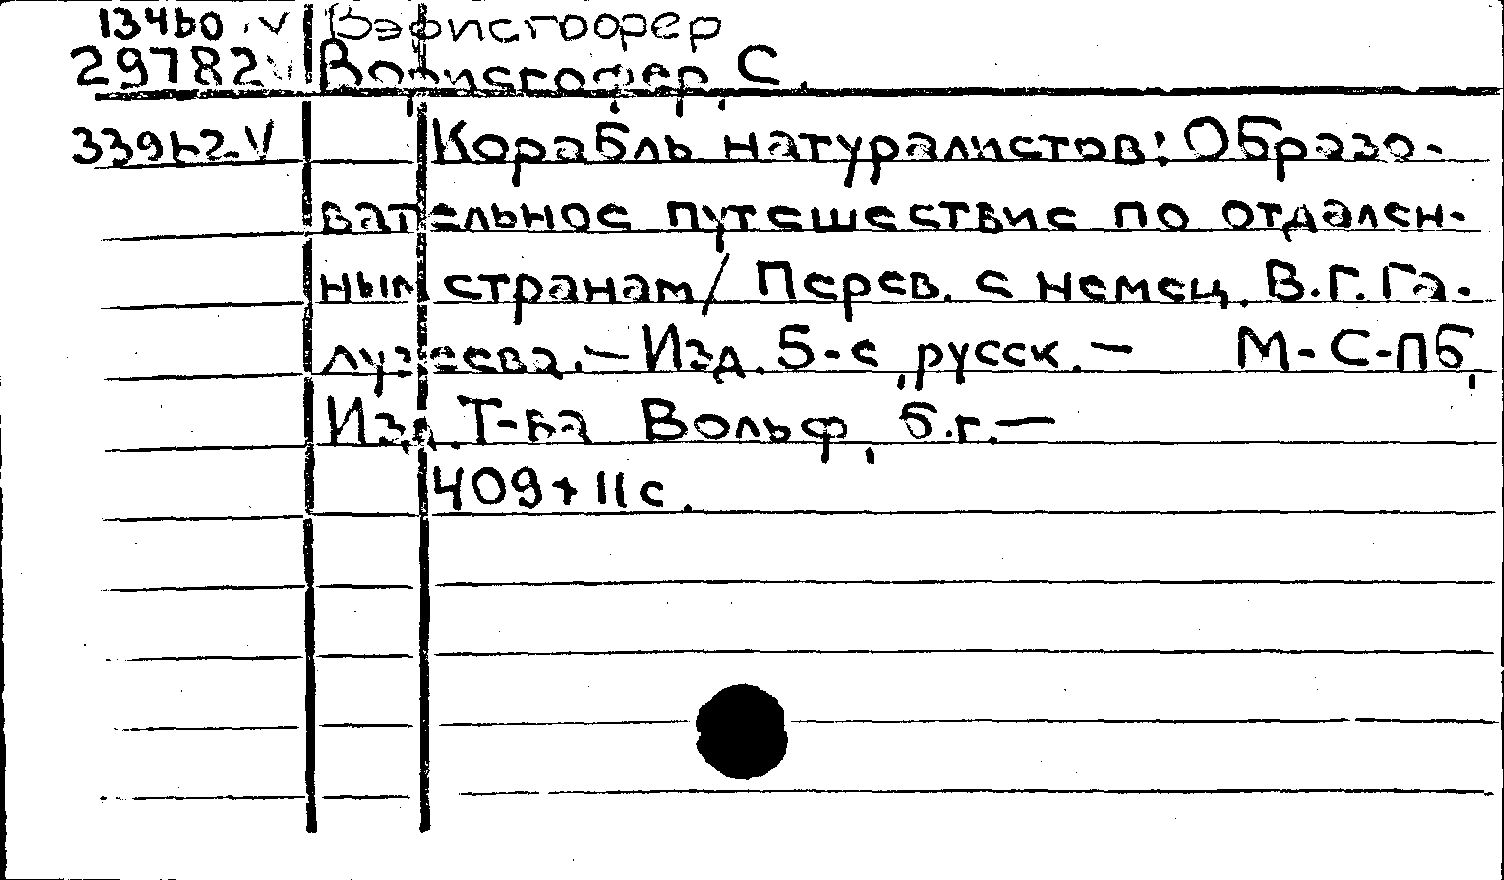 134b0 V Вэрисгофер
29782 V Ворисгофер, С.
V Корабль натуралистов: Образо-
вательное путешествие по отдален-
ным странам / Перев. с немец. В.Г. Га-
лузеева. — Изд. 5-е, русск. — М-С-Пб,
Изд. Т-ва Вольф, б.г. —
409 + 11 с.